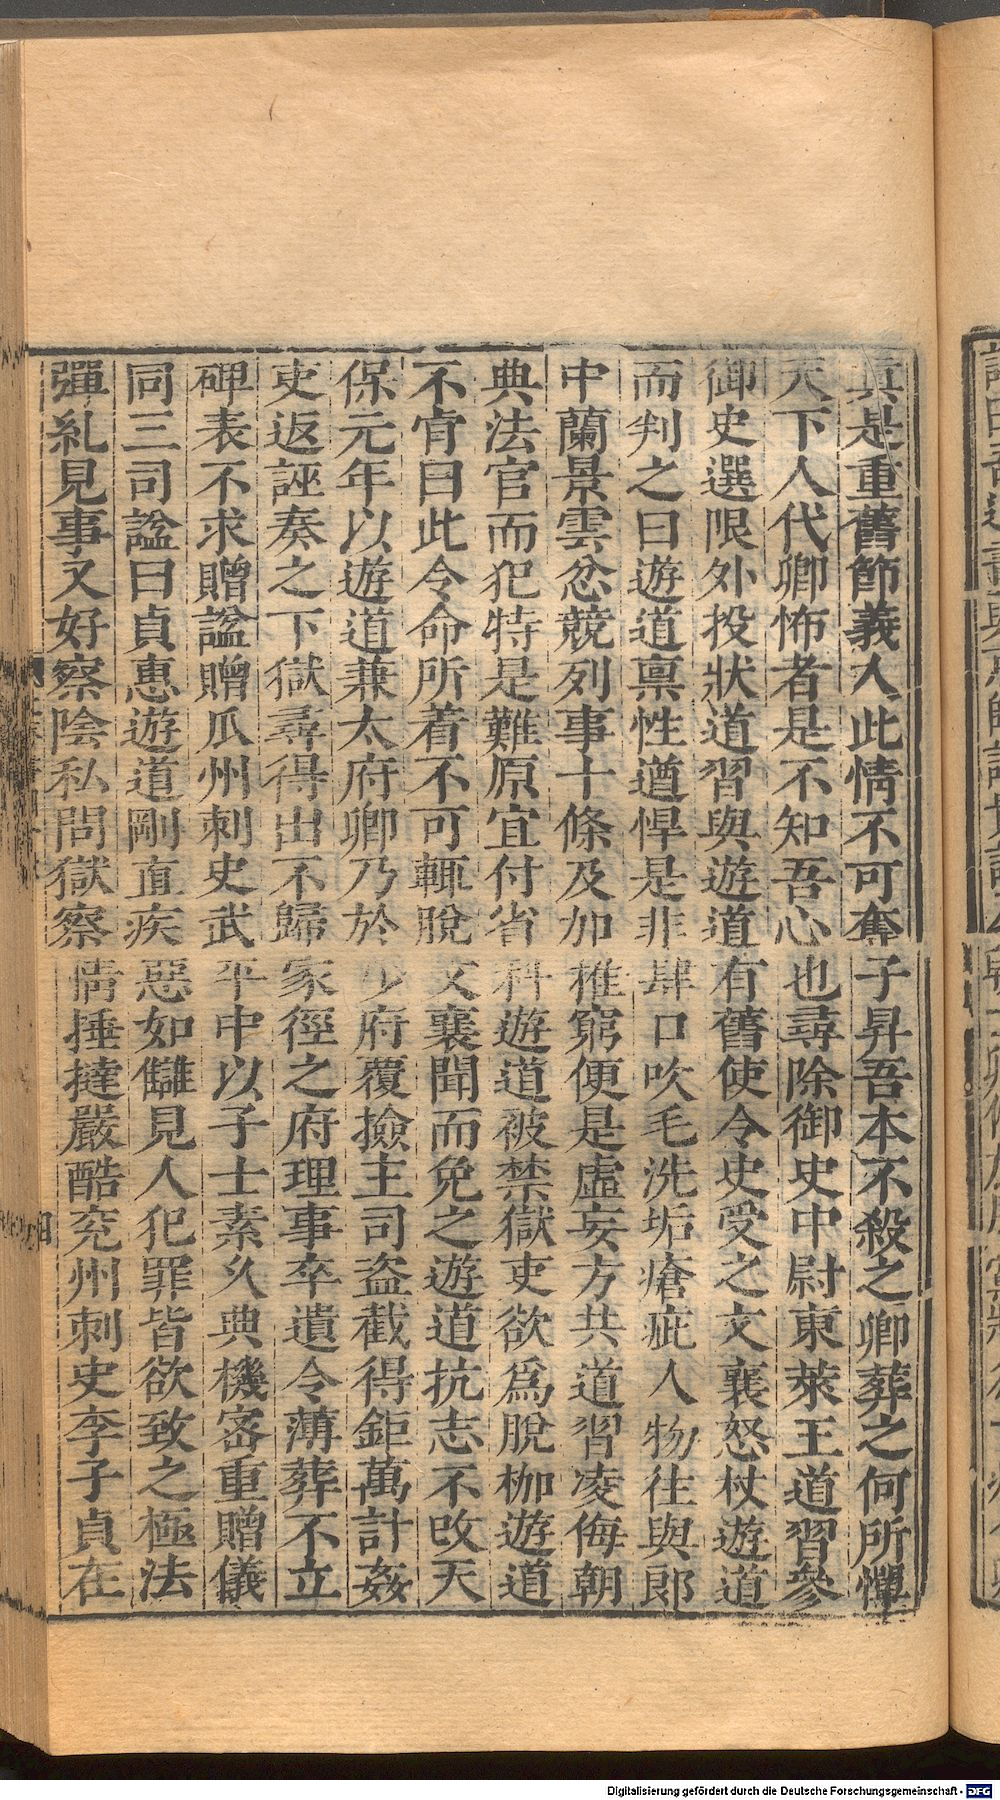 真是重舊節義人此情不可奪子昇吾本不殺之卿葬之何所憚
天下人代卿怖者是不知吾心也尋除御史中尉東萊王道習參
御史選限外投狀道習與遊道有舊使令史受之文襄怒杖遊道
而判之曰遊道禀性遒悍是非肆口吹毛洗垢瘡疵人物往與郎
中蘭景雲忿競列事十條及加推窮便是虛妄方共道習凌侮朝
典法官而犯特是難原宜付省科遊道被禁獄吏欲爲脫枷遊道
不肯曰此令命所着不可輒脫文襄聞而免之遊道抗志不改天
保元年以遊道兼太府卿乃於少府覆撿主司盜截得鉅萬計姦
吏返誣奏之下獄尋得出不歸家徑之府理事卒遺令薄葬不立
碑表不求贈謚贈瓜州刺史武平中以子士素久典機密重贈儀
同三司謚曰貞惠遊道剛直疾惡如讎見人犯罪皆欲致之極法
彈糺見事又好察陰私問獄察情捶撻嚴酷兖州刺史李子貞在
Digitalisierung gefördert durch die Deutsche Forschungsgemeinschaft - DFG